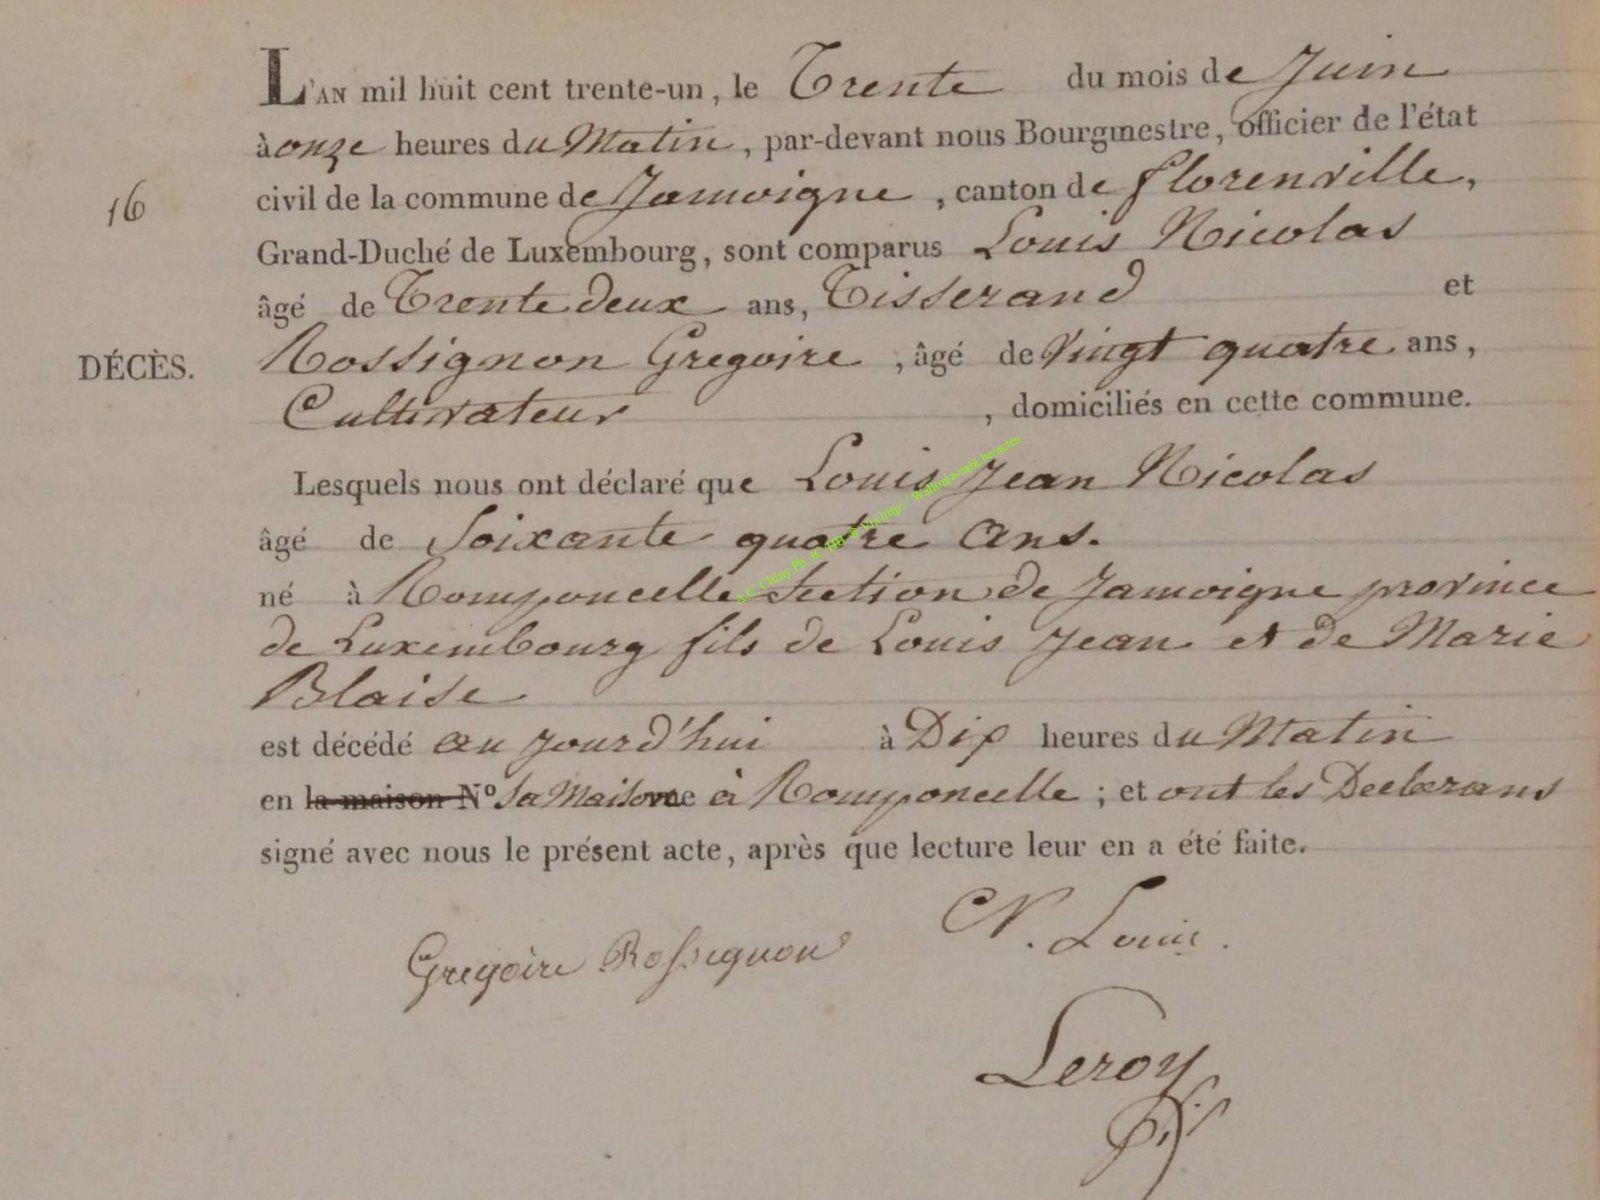 L'AN mil huit cent trente-un, le Trente du mois de Juin
à onze heures du Matin, par-devant nous Bourgmestre, officier de l'état
16
civil de la commune de Jamoigne, canton de florenville,
Grand-Duché de Luxembourg, sont comparus Louis Nicolas
âgé de Trente deux ans, Tisserand et
DÉCÈS.
Rossignon Gregoire, âgé de vingt quatre ans,
Cultivateur, domiciliés en cette commune.
Lesquels nous ont déclaré que Louis Jean Nicolas
âgé de Soixante quatre ans.
né à Romponcelle Section de Jamoigne province
de Luxembourg fils de Louis Jean et de Marie
Blaise
est décédé au jourd'hui à Dix heures du Matin
en la maison N° Sa Maison à Romponcelle; et ont les Declarans
signé avec nous le présent acte, après que lecture leur en a été faite.
N. Louis.
Gregoire Rossignon
Leroy